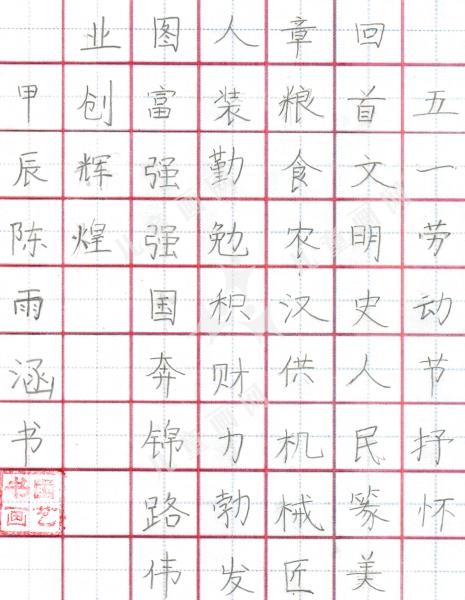 五一劳动节抒怀
回首文明史人民篆美
章粮食农汉供机械匠
人装勤勉积财力勃发
图富强强国奔锦路伟
业创辉煌
甲辰陈雨涵书
书画